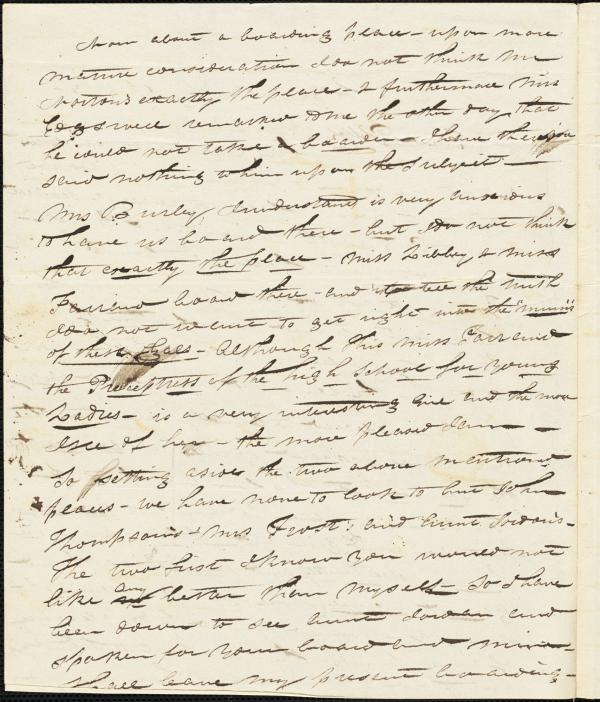 Now about a boarding place - upon more
mature consideration I do not think Mr
Norton's exactly the place - & furthermore Mrs
remarked to me the other day that
he could not take a boarder - I have therefore
said nothing to him upon the subject -
Mrs Burley, I understand is very anxious
to have us board there - but I do not think
that exactly the place - Miss Libby, & Miss
Farrend board there - and to tell the truth
I do not want to get right into the "
of these Gals - Although this Miss Farrend
the Preceptress of the high School for Young
Ladies - is a very interesting Girl and the more
I see of her - the more pleased I am -
So setting aside the two above mentiond
places - we have none to look to but John
Thompsons - Mrs Frost's and Aunt Jordan's -
The two first I know you would not
like any better than myself - So I have
been down to see Aunt Jordan and
spoken for your board and mine -
Shall leave my present boarding -